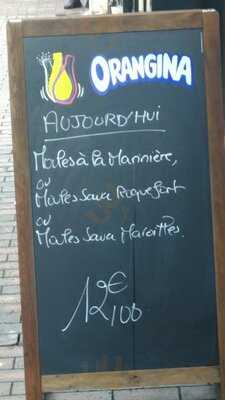 ORANGINA
AUJOURD'HUI
Moules à la Marinière,
ou
Moules Sauce Roquefort
ou
Moules Sauce Maroilles.
12€00